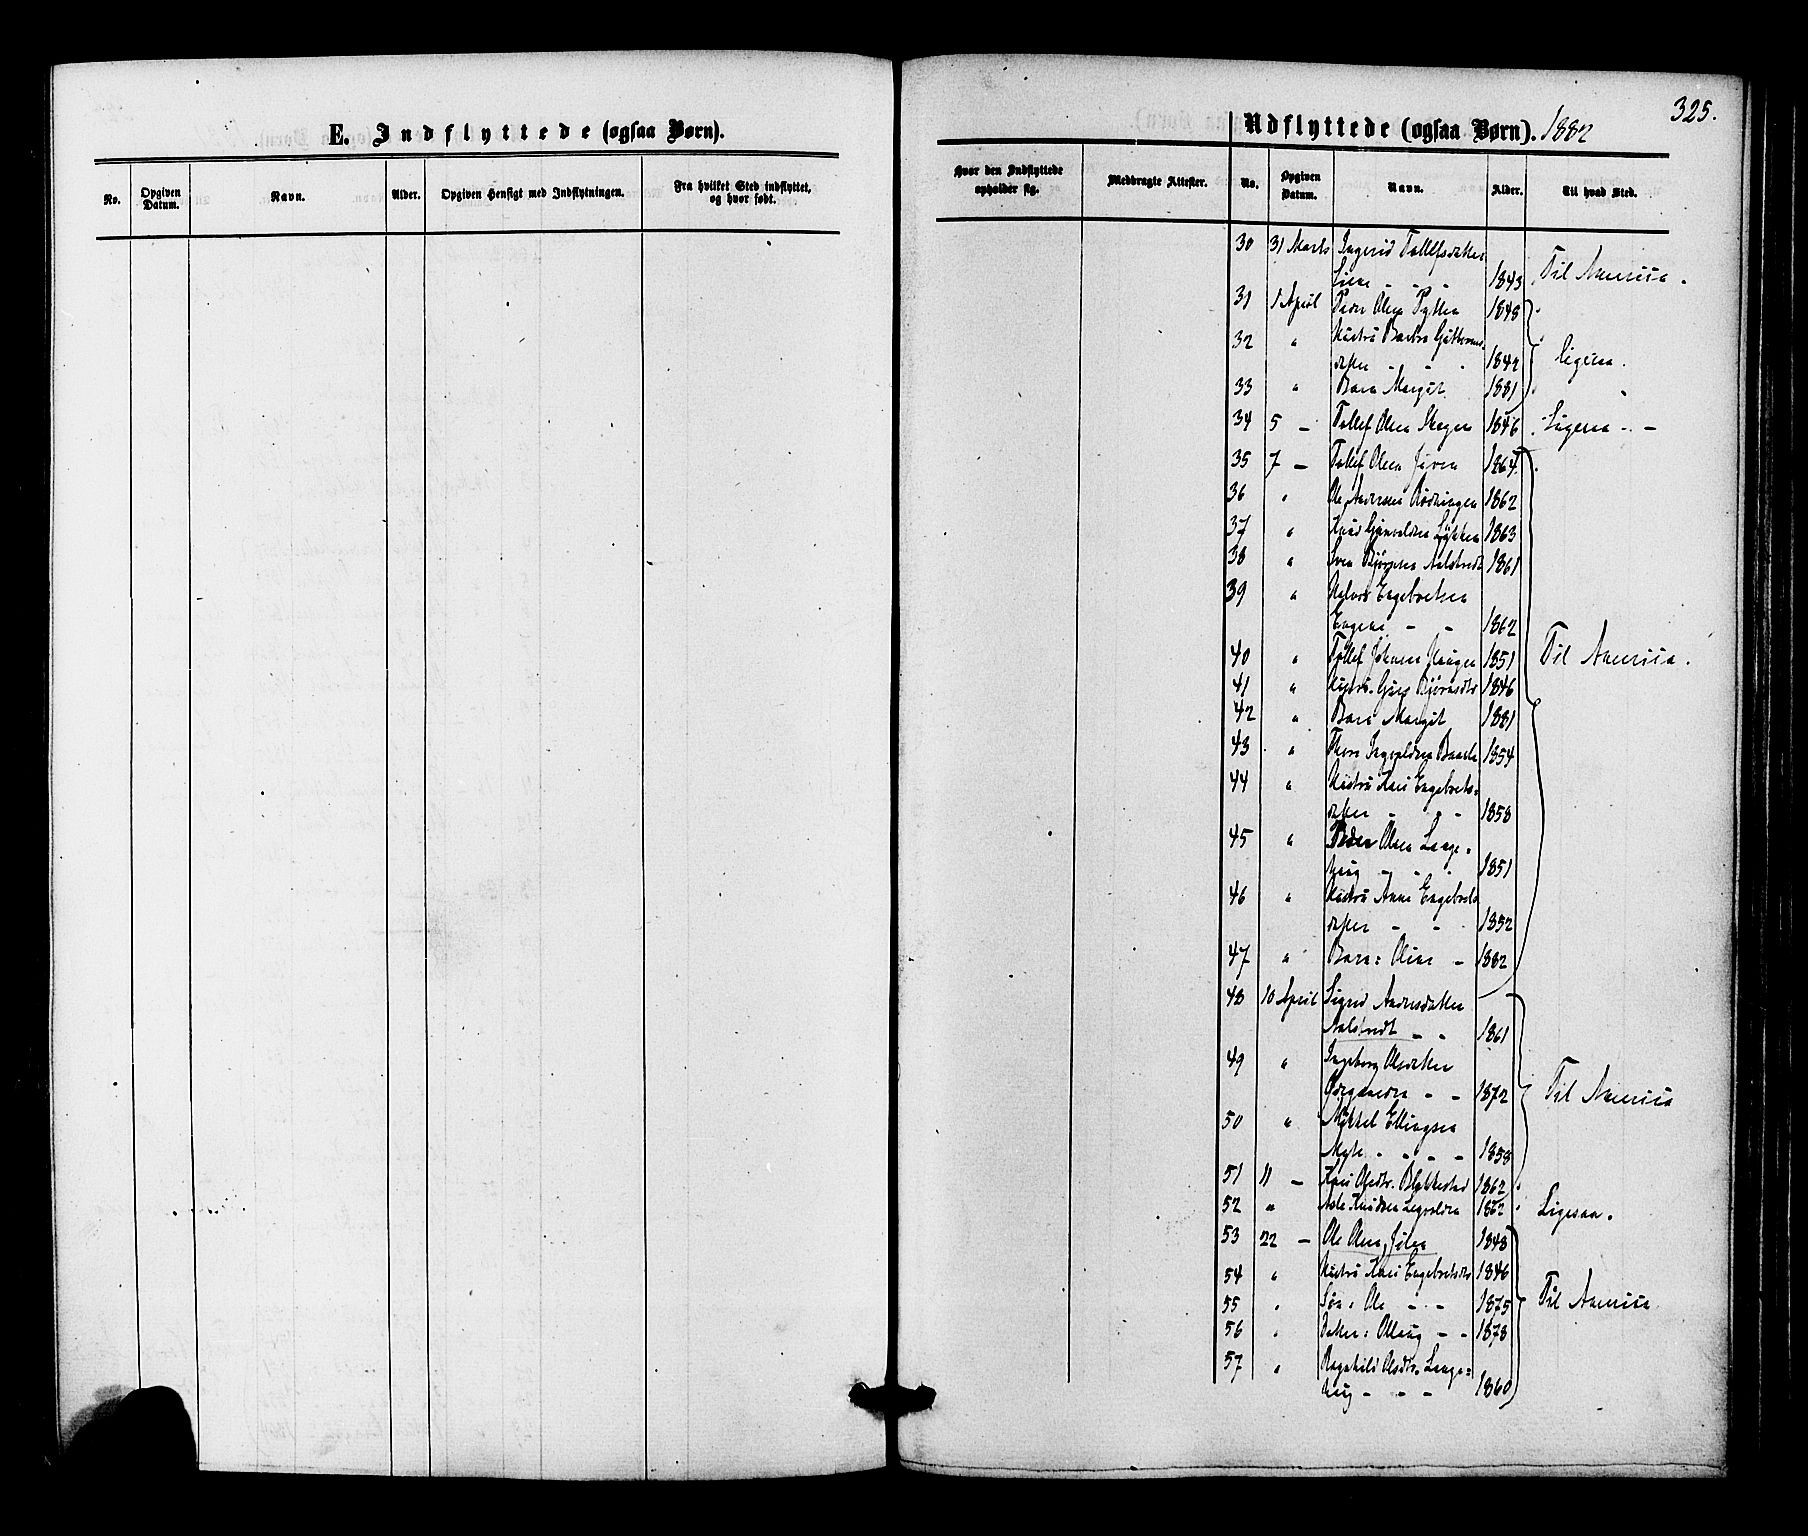 325.
E. Indflyttede (ogsaa Børn).
No. Opgiven Datum. Navn. Alder. Opgiven Hensigt med Indflytningen. Fra hvilket Sted indflyttet, og hvor født.
Udflyttede (ogsaa Børn). 1882
Hvor den Indflyttede opholder sig. Medbragte Attester. No. Opgiven Datum. Navn. Alder. Til hvad Sted.
30 31 Marts Ingerid Tollefsdatter
Lien - - 1843 Til Amerika.
31 1 April Peder Olsen 1848
32 " Hustru Guttorms-
datter - - - 1842 ligesaa.
33 " Barn Margit 1881
34 5 - Tollef Olsen Skogen 1846 Ligesaa - -
35 7 - Tollef Olsen 1864
36 " Ole Andersen Rødningen 1862
37 " Knud Løkken 1863
38 " Sven Bjørnsen Aalstvedt 1861
39 " Halvor Engebretsen
Engene - - 1862
40 " Tollef Johnsen Haugen 1851 Til Amerika.
41 " Hustru Guri Bjørnsdtr 1846
42 " Barn Margit 1881
43 " Thore Ingvaldsen 1854
44 " Hustru Kari Engebrets-
datter - - - 1858
45 " Peder Olsen Lange-
haug - - - 1851
46 " Hustru Anne Engebrets
datter - - 1852
47 " Barn: Oline - 1882
48 10 April Sigrid Andersdatter
Aalstvedt - - 1861
49 " Ingeborg Olsdatter
- - 1872 Til Amerika
50 " Mikkel Ellingsen
Myhre - - - - 1858
51 11 - Kari Olsdtr. 1862
52 " Asle Knudsen 1862 Ligesaa.
53 22 - Ole Olsen 1848
54 " Hustru Kari Engebretsdtr 1846
55 " Søn: Ole - - 1875 Til Amerika
56 " Datter: Ollaug - - 1878
57 " Ragnhild Olsdtr. Lange-
haug - - - 1860